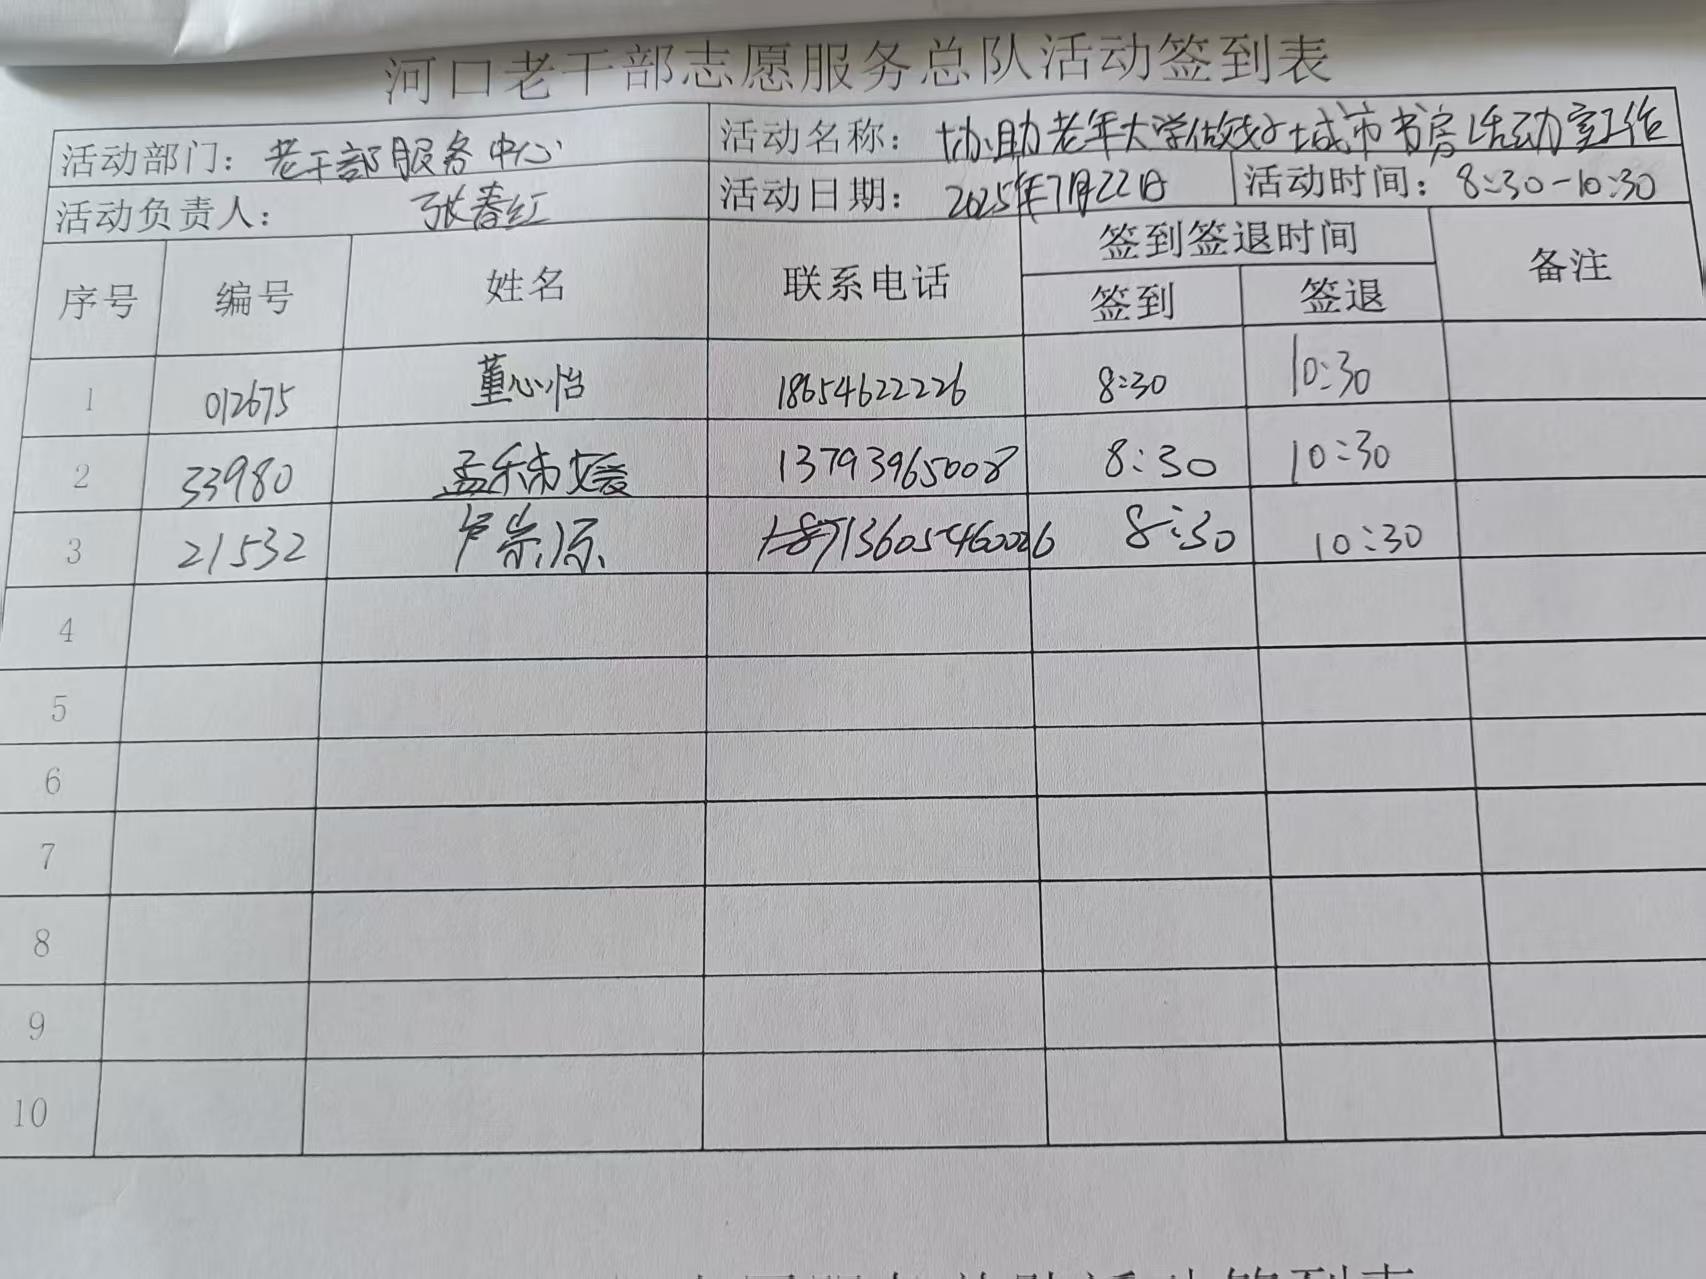 河口老干部志愿服务总队活动签到表
活动部门：老干部服务中心 活动名称：协助老年大学做好城市书房活动室工作
活动负责人：张春红 活动日期：2025年7月22日 活动时间：8:30-10:30
序号 编号 姓名 联系电话 签到签退时间 备注
签到 签退
1 012675 董心怡 18654622226 8:30 10:30
2 33980 孟乐 13793965008 8:30 10:30
3 21532 卢崇源 13605460026 8:30 10:30
4
5
6
7
8
9
10